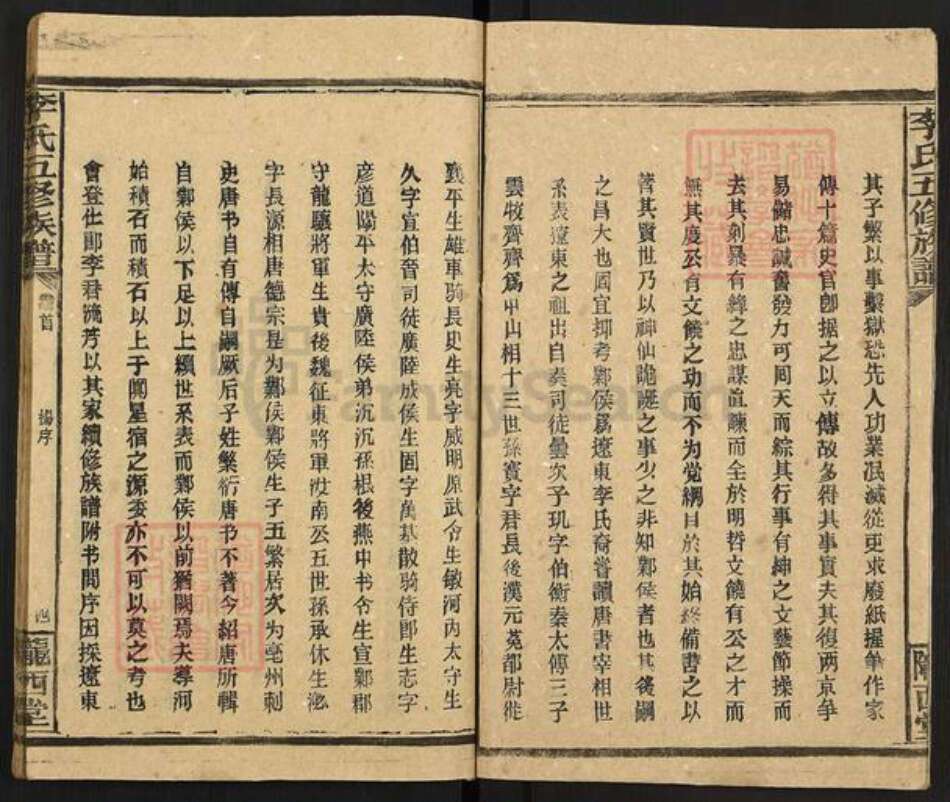 李氏五修族譜
隴西堂
其子繁以事繫獄恐先人功業泯滅從吏求廢紙握筆作家
傳十篇史官卽据之以立傳故多得其事實夫其復两京爭
易儲忠誠奮發力可囘天而綜其行事有紳之文藝節操而
去其剝暴有絳之忠謀直諫而全於明哲文饒有公之才而
無其度公有文饒之功而不为党綱目於其始終備書之以
著其賢世乃以神仙詭誕之事少之非知鄴侯者也其後嗣
之昌大也固宜抑考鄴侯爲遼東李氏裔嘗讀唐書宰相世
系表遼東之祖出自秦司徒曇次子玑字伯衡秦太傅三子
雲牧齊齊爲中山相十三世孫寳字君長後漢元菟都尉徙
襄平生雄車騎長史生亮字威明原武令生敏河內太守生
久字宣伯晉司徒廣陸成侯生固字萬基散騎侍郎生志字
彥道陽平太守廣陸侯弟沉沉孫根後燕中书令生宣鄴郡
守龍驤將軍生貴後魏征東將軍汝南公五世孫承休生泌
字長源相唐德宗是为鄴侯鄴侯生子五繁居次为亳州刺
史唐书自有傳自嗣厥后子姓繁衍唐书不著今紹唐所輯
自鄴侯以下足以上續世系表而鄴侯以前猶闕焉夫導河
始積石而積石以上于闐星宿之源委亦不可以莫之考也
會登仕郎李君流芳以其家續修族譜附书問序因採遼東
李氏五修族譜
卷首
楊序
四
隴西堂
FamilySearch